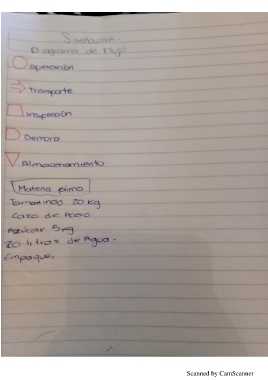 Simbología.
Diagrama de Flujo
Operación
Transporte
Inspección
Demora
Almacenamiento
Materia prima
Tamarindo 20 kg
Cazo de Acero
Azúcar 5 kg
20 litros de Agua.
Empaque.
Scanned by CamScanner